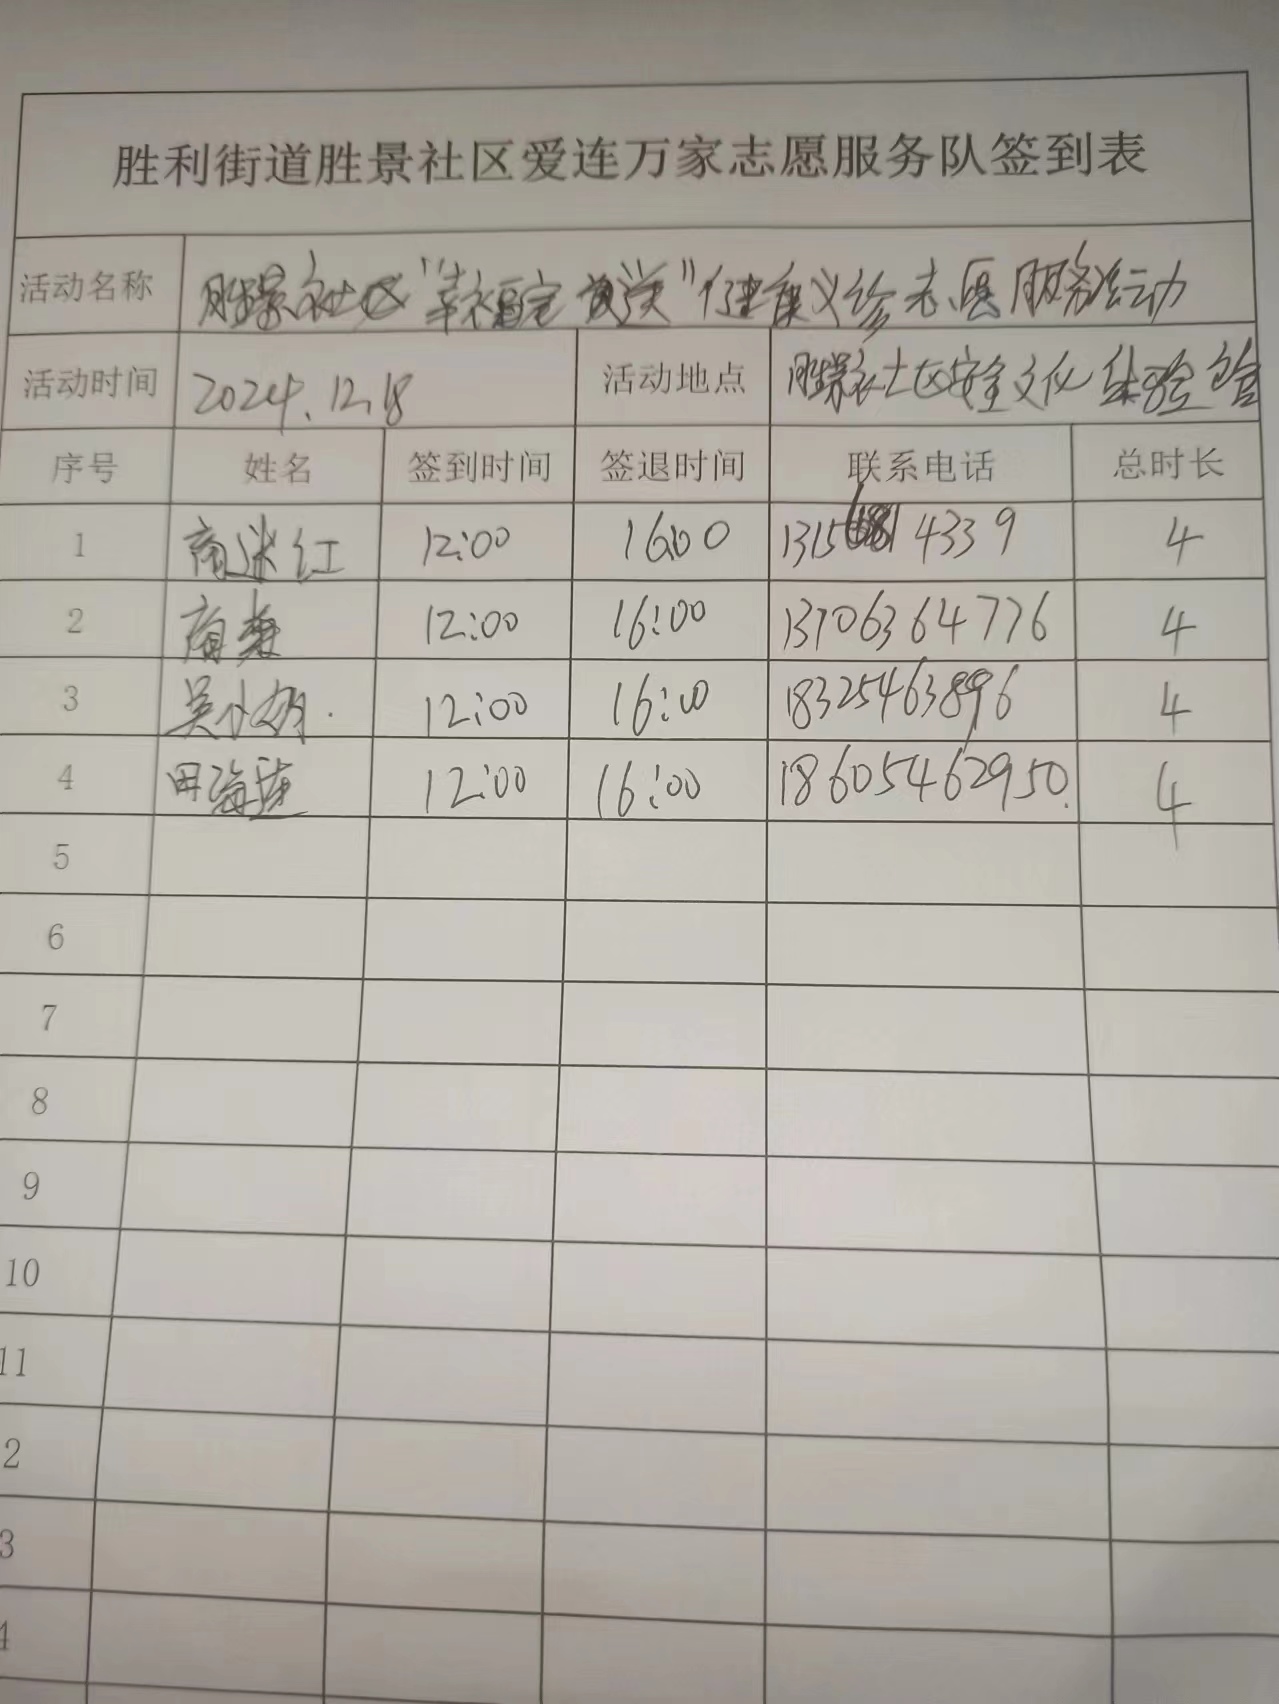 胜利街道胜景社区爱连万家志愿服务队签到表
活动名称 胜景社区“幸福宅 学堂”健康义诊志愿服务活动
活动时间 2024.12.18 活动地点 胜景社区安全文化体验馆
序号 姓名 签到时间 签退时间 联系电话 总时长
1 商迷红 12:00 16:00 4339 4
2 商 12:00 16:00 13706364776 4
3 吴小娟 12:00 16:00 18325463896 4
4 田海莲 12:00 16:00 18605462950 4
5
6
7
8
9
10
11
2
3
4